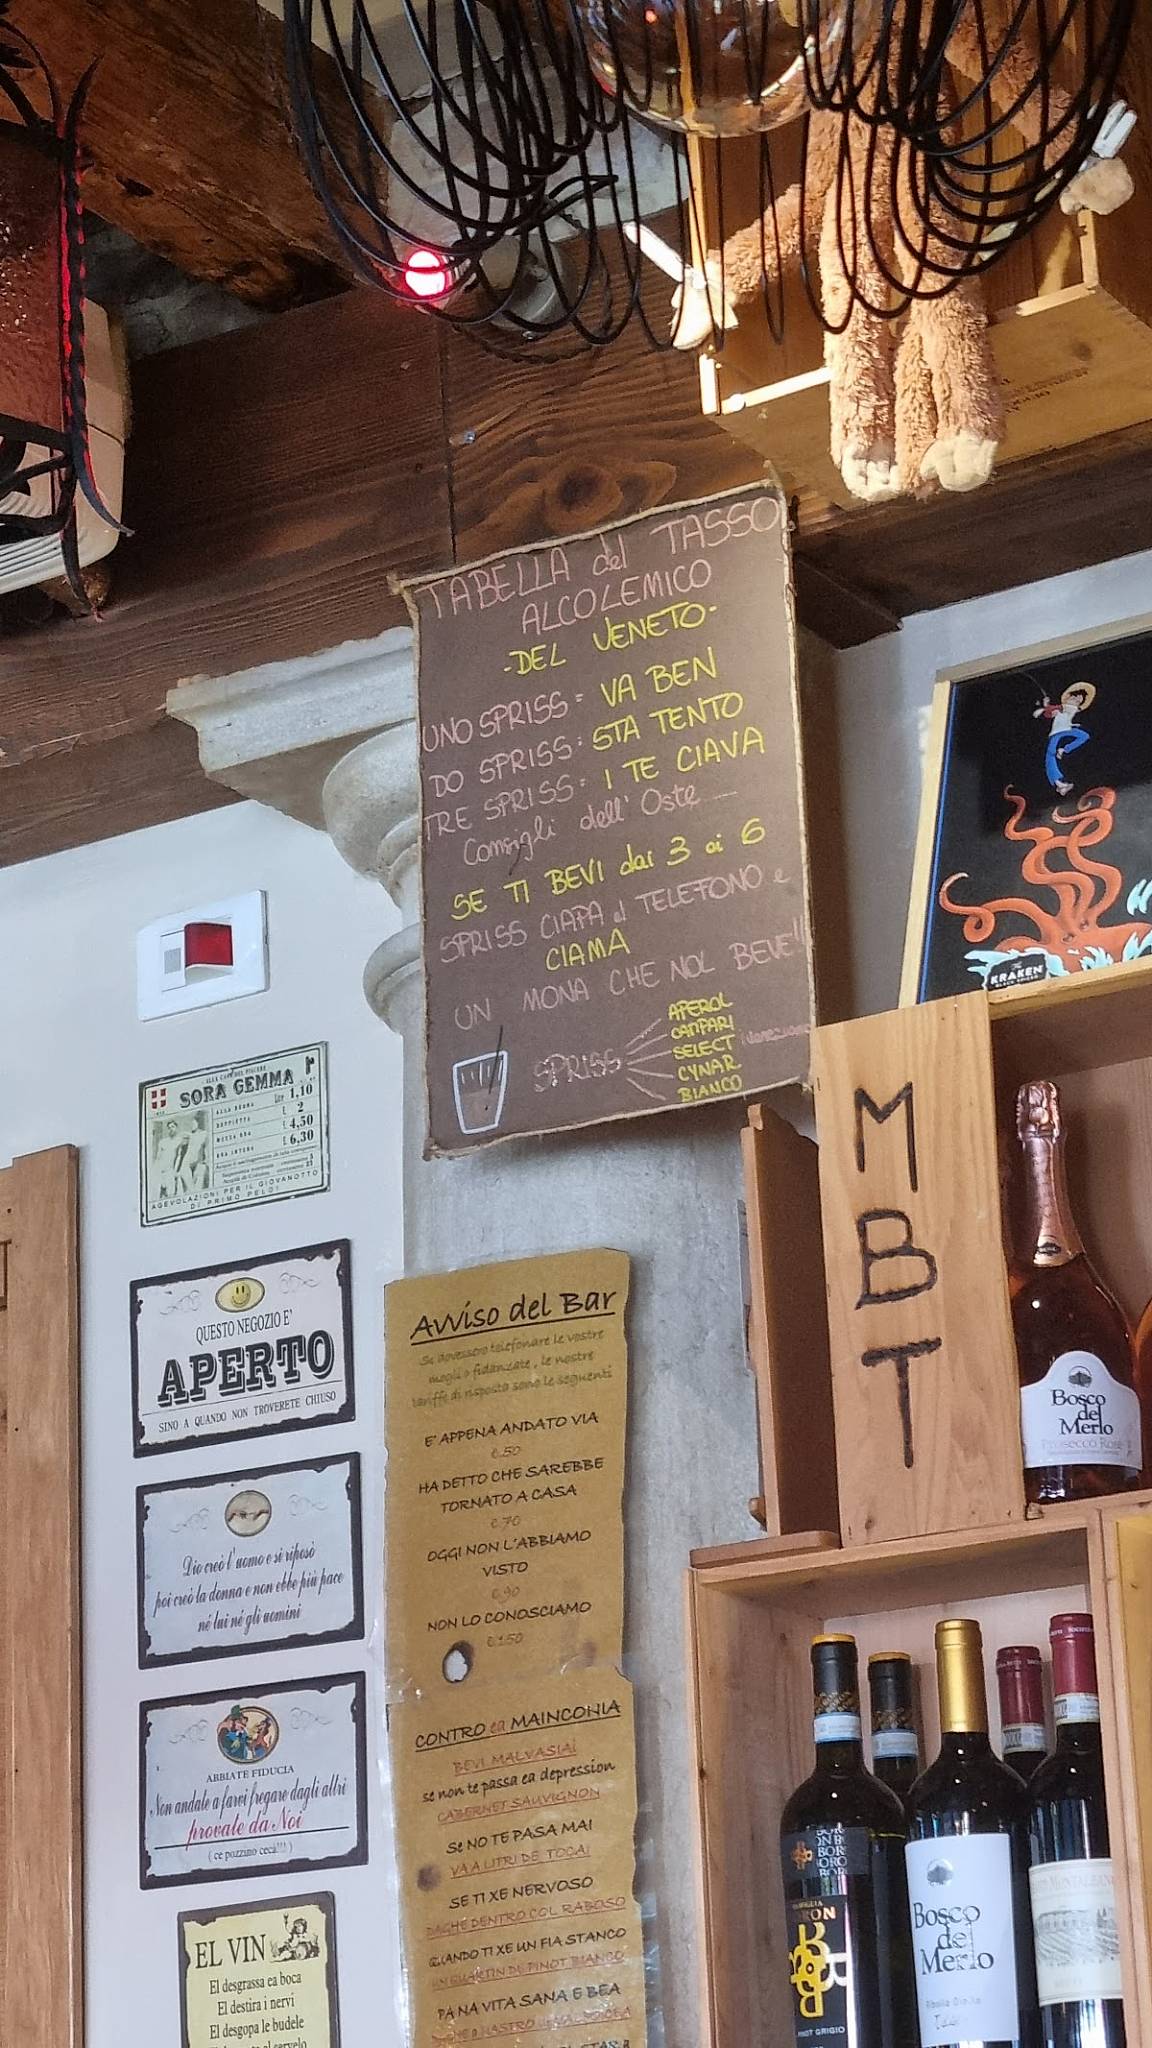 TABELLA del TASSO
ALCOLEMICO
-DEL VENETO-
UNO SPRISS = VA BEN
DO SPRISS: STA TENTO
TRE SPRISS: I TE CIAVA
Consigli dell' Oste
SE TI BEVI dai 3 ai 6
SPRISS CIAPA el TELEFONO e
CIAMA
UN MONA CHE NOL BEVE!!
SPRISS
APEROL
CAMPARI
SELECT
CYNAR
BIANCO
The
KRAKEN
M
B
T
Bosco
del
Merlo
Prosecco Rosé
SORA GEMMA
1,10
£ 2
£ 4,50
£ 6,30
AGEVOLAZIONI PER IL GIOVANOTTO
DI PRIMO PELO!
QUESTO NEGOZIO E'
APERTO
SINO A QUANDO NON TROVERETE CHIUSO
Dio creò l'uomo e si riposò
poi creò la donna e non ebbe più pace
né lui né gli uomini
ABBIATE FIDUCIA
Non andate a farvi fregare dagli altri
provate da Noi
( ce pozzino cecà!!! )
EL VIN
El desgrassa ea boca
El destira i nervi
El desgopa le budele
Avviso del Bar
Se dovessero telefonare le vostre
mogli o fidanzate, le nostre
tariffe di risposta sono le seguenti
E' APPENA ANDATO VIA
€.50
HA DETTO CHE SAREBBE
TORNATO A CASA
€.70
OGGI NON L'ABBIAMO
VISTO
€.90
NON LO CONOSCIAMO
€.1.50
CONTRO ea MAINCONIA
BEVI MALVASIA!
se non te passa ea depression
CABERNET SAUVIGNON
Se NO TE PASA MAI
VA A LITRI DE TOCAI
SE TI XE NERVOSO
DAGHE DENTRO COL RABOSO
QUANDO TI XE UN FIA STANCO
UN QUARTIN DE PINOT BIANCO
PA NA VITA SANA E BEA
PINOT GRIGIO
Bosco
del
Merlo